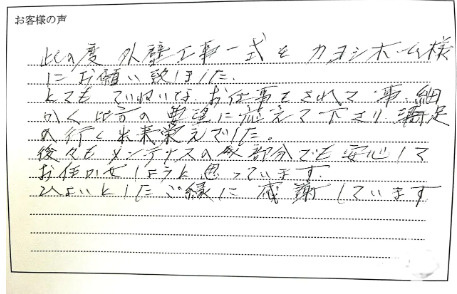 お客様の声
此の度 外壁工事一式を カヨシホーム様
にお願い致しました。
とても ていねいな お仕事をされて 事細
かく 此方の要望に応えて下さり 満足
の行く出来栄えでした。
後々もメンテナスの 部分でも安心して
お任かせしようと思っています
ひょんとした ご縁に 感謝しています